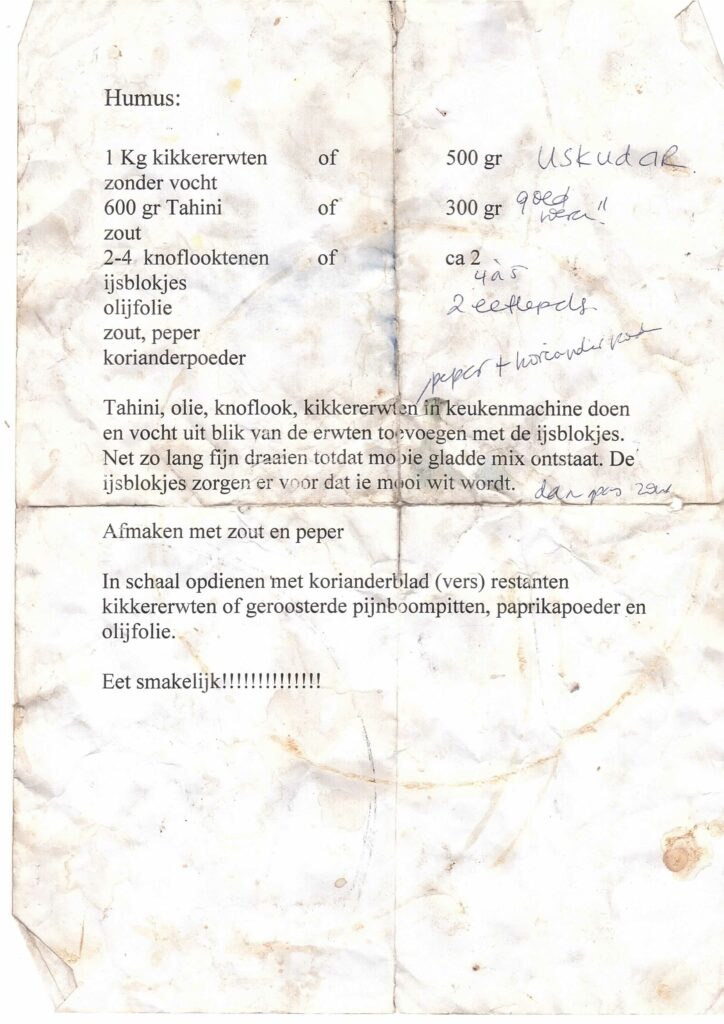 Humus:
1 Kg kikkererwten of 500 gr USKUdAR
zonder vocht
600 gr Tahini of 300 gr goed
zout
2-4 knoflooktenen of ca 2
ijsblokjes 4 à 5
olijfolie 2 eetlepels.
zout, peper
korianderpoeder peper + korianderpoeder
Tahini, olie, knoflook, kikkererwten in keukenmachine doen
en vocht uit blik van de erwten toevoegen met de ijsblokjes.
Net zo lang fijn draaien totdat mooie gladde mix ontstaat. De
ijsblokjes zorgen er voor dat ie mooi wit wordt. dan pas zout
Afmaken met zout en peper
In schaal opdienen met korianderblad (vers) restanten
kikkererwten of geroosterde pijnboompitten, paprikapoeder en
olijfolie.
Eet smakelijk!!!!!!!!!!!!!!